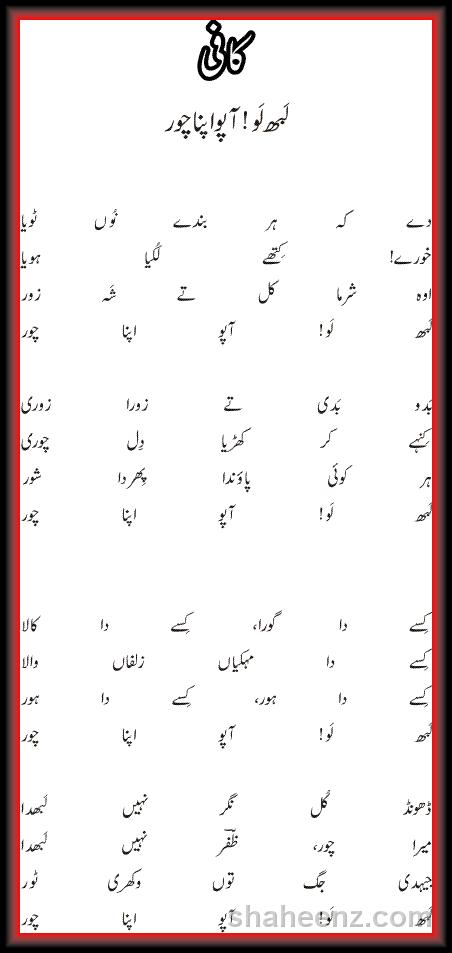 کافی
لَبھ لَو! آپو اپنا چور
دے کہ ہر بندے نُوں ٹویا
خورے! کِتھے لُکیا ہویا
اوہ شرما کل تے شَہ زور
لَبھ لَو! آپو اپنا چور
بَدو بَدی تے زورا زوری
کِنہے کر کھڑیا دِل چوری
ہر کوئی پاؤندا پِھردا شور
لَبھ لَو! آپو اپنا چور
کِسے دا گورا، کِسے دا کالا
کِسے دا مہکیاں زلفاں والا
کِسے دا ہور، کِسے دا ہور
لَبھ لَو! آپو اپنا چور
ڈھونڈ کُل نگر نہیں لَبھدا
میرا چور، ظفؔر نہیں لَبھدا
جیہدی جگ توں وکھری ٹور
لَبھ لَو! آپو اپنا چور
shaheenz.com